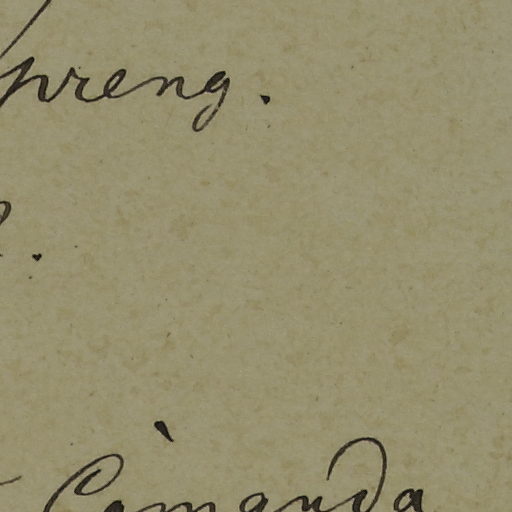 preng.
Camanda